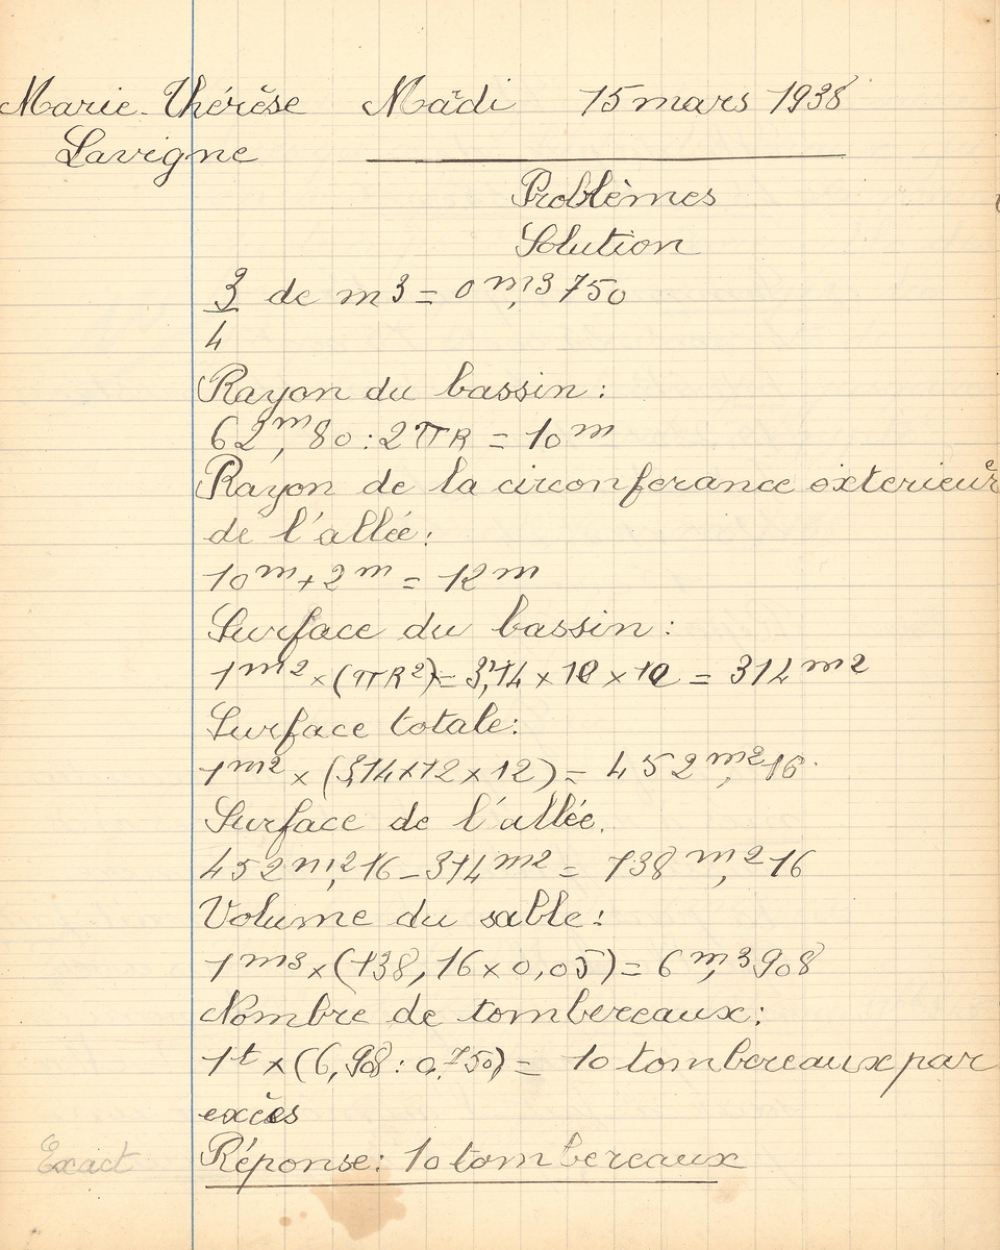 Marie-Thérèse Mardi 15 mars 1938
Lavigne
Problèmes
Solution
3/4 de m3 = 0m3,750
Rayon du bassin :
62m,80 : 2πR = 10m
Rayon de la circonferance exterieur
de l'allée :
10m + 2m = 12m
Surface du bassin :
1m2 × (πR2) = 3,14 × 10 × 10 = 314m2
Surface totale :
1m2 × (3,14 × 12 × 12) = 452m2,16
Surface de l'allée.
452m2,16 - 314m2 = 138m2,16
Volume du sable :
1m3 × (138,16 × 0,05) = 6m3,908
Nombre de tombereaux :
1t × (6,908 : 0,750) = 10 tombereaux par
excès
Exact Réponse : 10 tombereaux